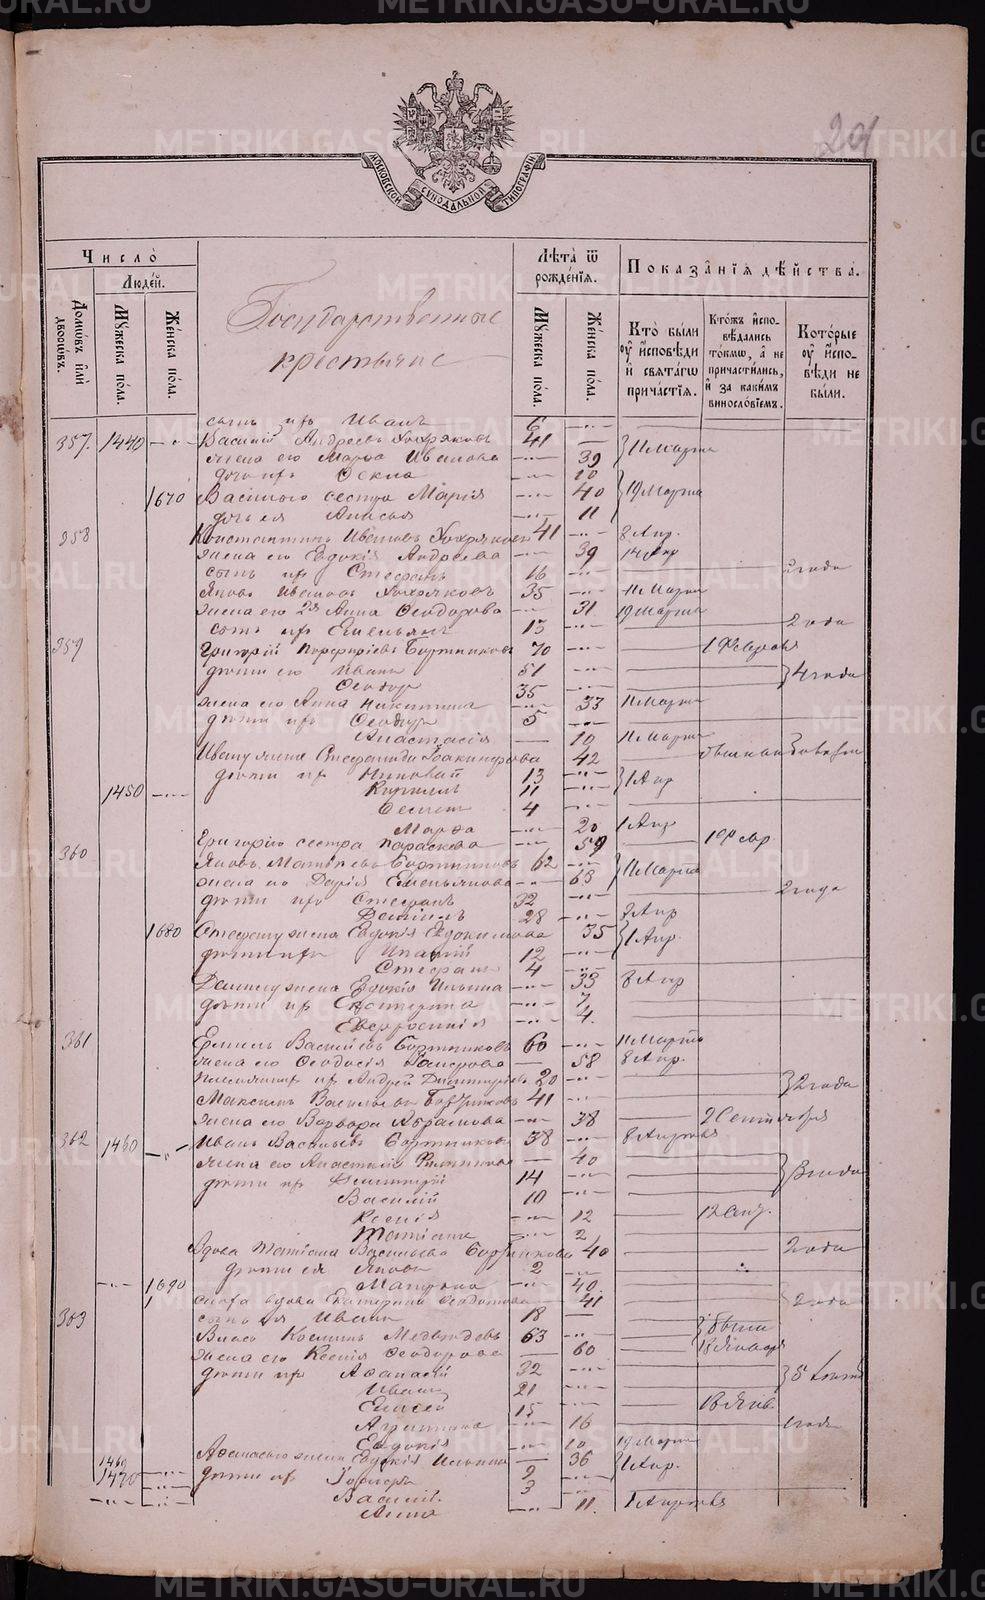 METRIKI.GASO-URAL.RU
201
МОСКОВСКОЙ СѴНОДАЛЬНОЙ ТИПОГРАФІИ
Число̀
Людей.
Домѡвъ илѝ дворѡвъ.
Мꙋжеска пола.
Женска пола.
Государственные
крестьяне
Лѣта ѿ рожденїѧ.
Мꙋжеска пола.
Женска пола.
Показанїѧ дѣйства.
Кто̀ были оу҆ и҆сповѣди и҆ свѧтагѡ причастїѧ.
Ктожъ и҆сповѣдались токмѡ, а҆ не причастились, и҆ за какимъ винословїемъ.
Которые оу҆ и҆сповѣди не были.
сынъ ихъ Иванъ 6
357. 1440 Василій Андреевъ Хохряковъ 41
жена его Марѳа Иванова 39 11 Марта
дочь ихъ Ѳекла 10
1670 Василья сестра Марія 40 19 Марта
дочь ея Анисья 11
358 Константинъ Ивановъ Хохряковъ 41 8 Апр.
жена его Евдокія Андреева 39 14 Апр
сынъ ихъ Стефанъ 16 2 года
Яковъ Ивановъ Хохряковъ 35 11 Марта
жена его 2я Анна Ѳеодорова 31 19 Марта
сынъ ихъ Емельянъ 13 2 года
359 Григорій Порфирьевъ Бортниковъ 70 1 Февраля
дѣти его Иванъ 51 4 года
Ѳеодоръ 35
жена его Анна Никитина 33 11 Марта
дѣти ихъ Ѳеодоръ 5
Анастасія 10 11 Марта
Ивану жена Стефанида 42
дѣти ихъ 13 1 Апр
1450 Кириллъ 11
4
Марѳа 20 1 Апр
Григорію сестра Параскева 59 19 Февр
360 Яковъ Матвѣевъ Бортниковъ 62 11 Марта
жена его Дарія Емельянова 63
дѣти ихъ Стефанъ 32 2 года
Даніилъ 28 8 Апр
1680 Стефану жена Евдокія Евдокимова 35 1 Апр.
дѣти ихъ Ипатій 12
Стефанъ 4
Даніилу жена Евдокія Ильина 33 8 Апр
дѣти ихъ Екатерина 7
Евфросинія 4
361 Ермилъ Васильевъ Бортниковъ 60 11 Марта
жена его Ѳеодосія 58 8 Апр.
племянникъ ихъ Андрей Димитріевъ 20 2 года
Максимъ Васильевъ Бортниковъ 41
жена его Варвара Абрамова 38 2 Сентября
362 1460 Иванъ Васильевъ Бортниковъ 38 8 Апрѣля
жена его Анастасія Филиппова 40 3 года
дѣти ихъ Димитрій 14
Василій 10
Ксенія 12
Татіана 2
Вдова Татіана Васильева Бортникова 40 2 года
дѣти ея Яковъ 2
1690 Матрона 40
сноха вдова Екатерина Ѳеодотова 41 2 года
сынъ ея Иванъ 18
363 Власъ Козминъ Медвѣдевъ 63
жена его Ксенія Ѳеодорова 60 18 Января
дѣти ихъ Аѳанасій 32
Иванъ 21
Елисей 15 18 Янв.
16 1 годъ
Евдокія 10 19 Марта
Аѳанасью жена Евдокія Ильина 36 1 Апр.
1469
1470 дѣти ихъ 2
Василій 3
Анна 11 1 Апрѣля